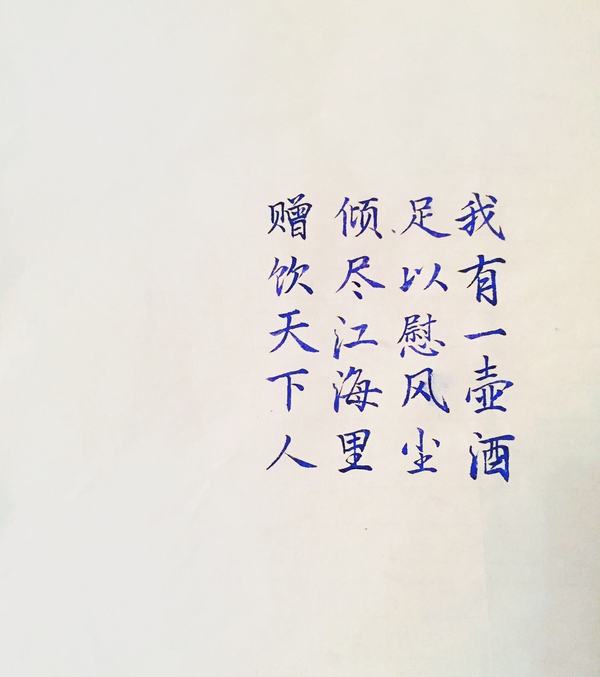 我有一壶酒
足以慰风尘
倾尽江海里
赠饮天下人